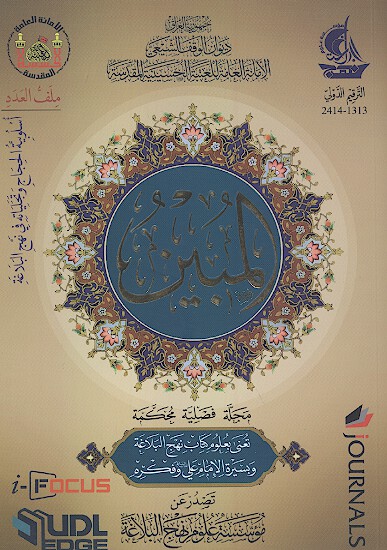 جمهورية العراق
ديوان الوقف الشيعي
الأمانة العامة للعتبة الحسينية المقدسة
الترقيم الدولي
2414-1313
ملف العدد
أسلوبية الحجاج وتجلياته في نهج البلاغة
المبين
مجلة فصلية محكمة
تعنى بعلوم كتاب نهج البلاغة
وبسيرة الإمام علي وفكره
تصدر عن
مؤسسة علوم نهج البلاغة
i-FOCUS
UDL
EDGE
iJOURNALS